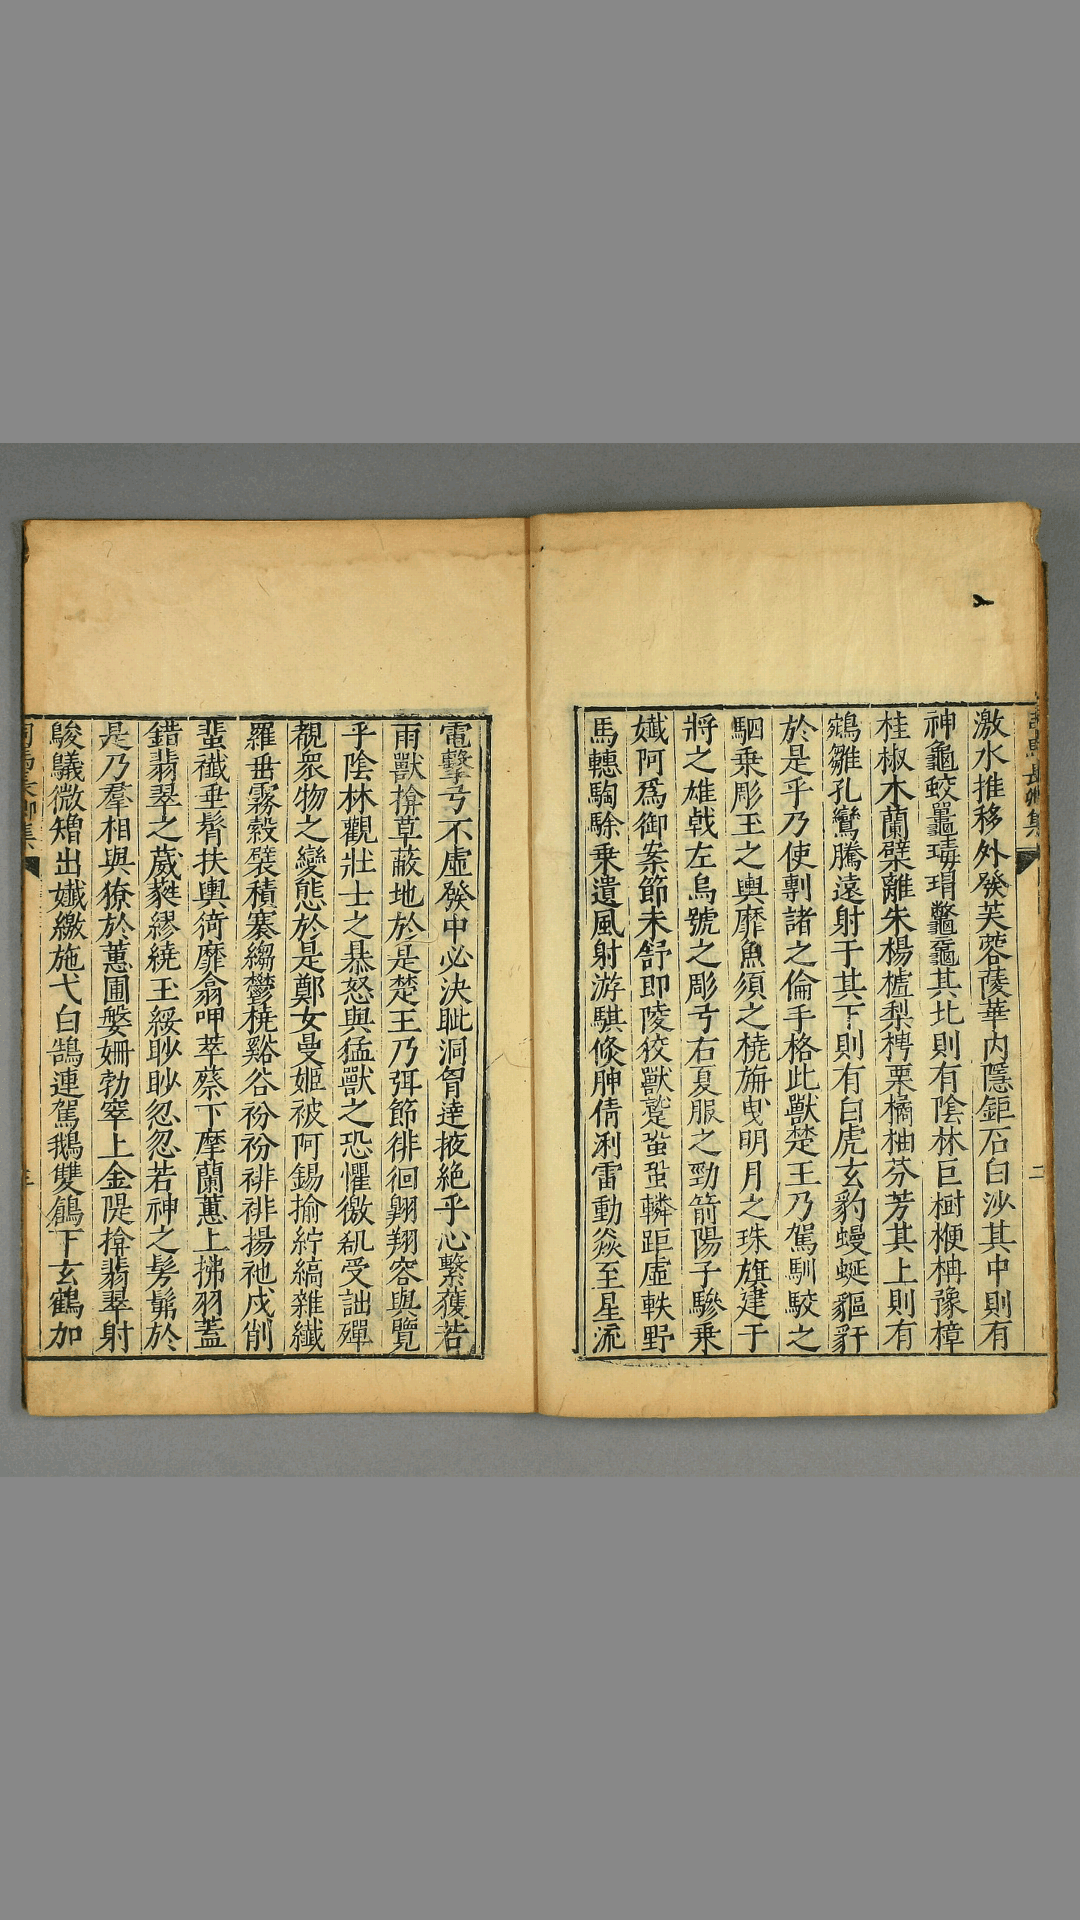 司馬長卿集
二
激水推移外發芙蓉蔆華内隱鉅石白沙其中則有
神龜蛟鼉瑇瑁鼈黿其北則有陰林巨樹楩柟豫樟
桂椒木蘭檗離朱楊樝梨梬栗橘柚芬芳其上則有
鵷雛孔鸞騰遠射干其下則有白虎玄豹蟃蜒貙豻
於是乎乃使剸諸之倫手格此獸楚王乃駕馴駮之
駟乗彫玉之輿靡魚須之橈旃曳明月之珠旗建干
將之雄戟左烏號之彫弓右夏服之勁箭陽子驂乗
孅阿爲御案節未舒即陵狡獸蹵蛩蛩轔距虛軼野
馬轊騊駼乗遺風射游騏倏胂倩浰雷動猋至星流
電擊弓不虛發中必決眦洞胷達掖絶乎心繫獲若
雨獸揜草蔽地於是楚王乃弭節徘徊翺翔容與覽
乎陰林觀壯士之暴怒與猛獸之恐懼徼䝱受詘殫
覩衆物之變態於是鄭女曼姬被阿錫揄紵縞雜纖
羅垂霧縠襞積褰縐鬱橈谿谷衯衯裶裶揚袘戌削
蜚襳垂髾扶輿猗靡翕呷萃蔡下摩蘭蕙上拂羽蓋
錯翡翠之葳蕤繆繞玉綏眇眇忽忽若神之髣髴於
是乃羣相與獠於蕙圃媻姍勃窣上金隄揜翡翠射
鵔鸃微矰出孅繳施弋白鵠連駕鵝雙鶬下玄鶴加
司馬長卿集